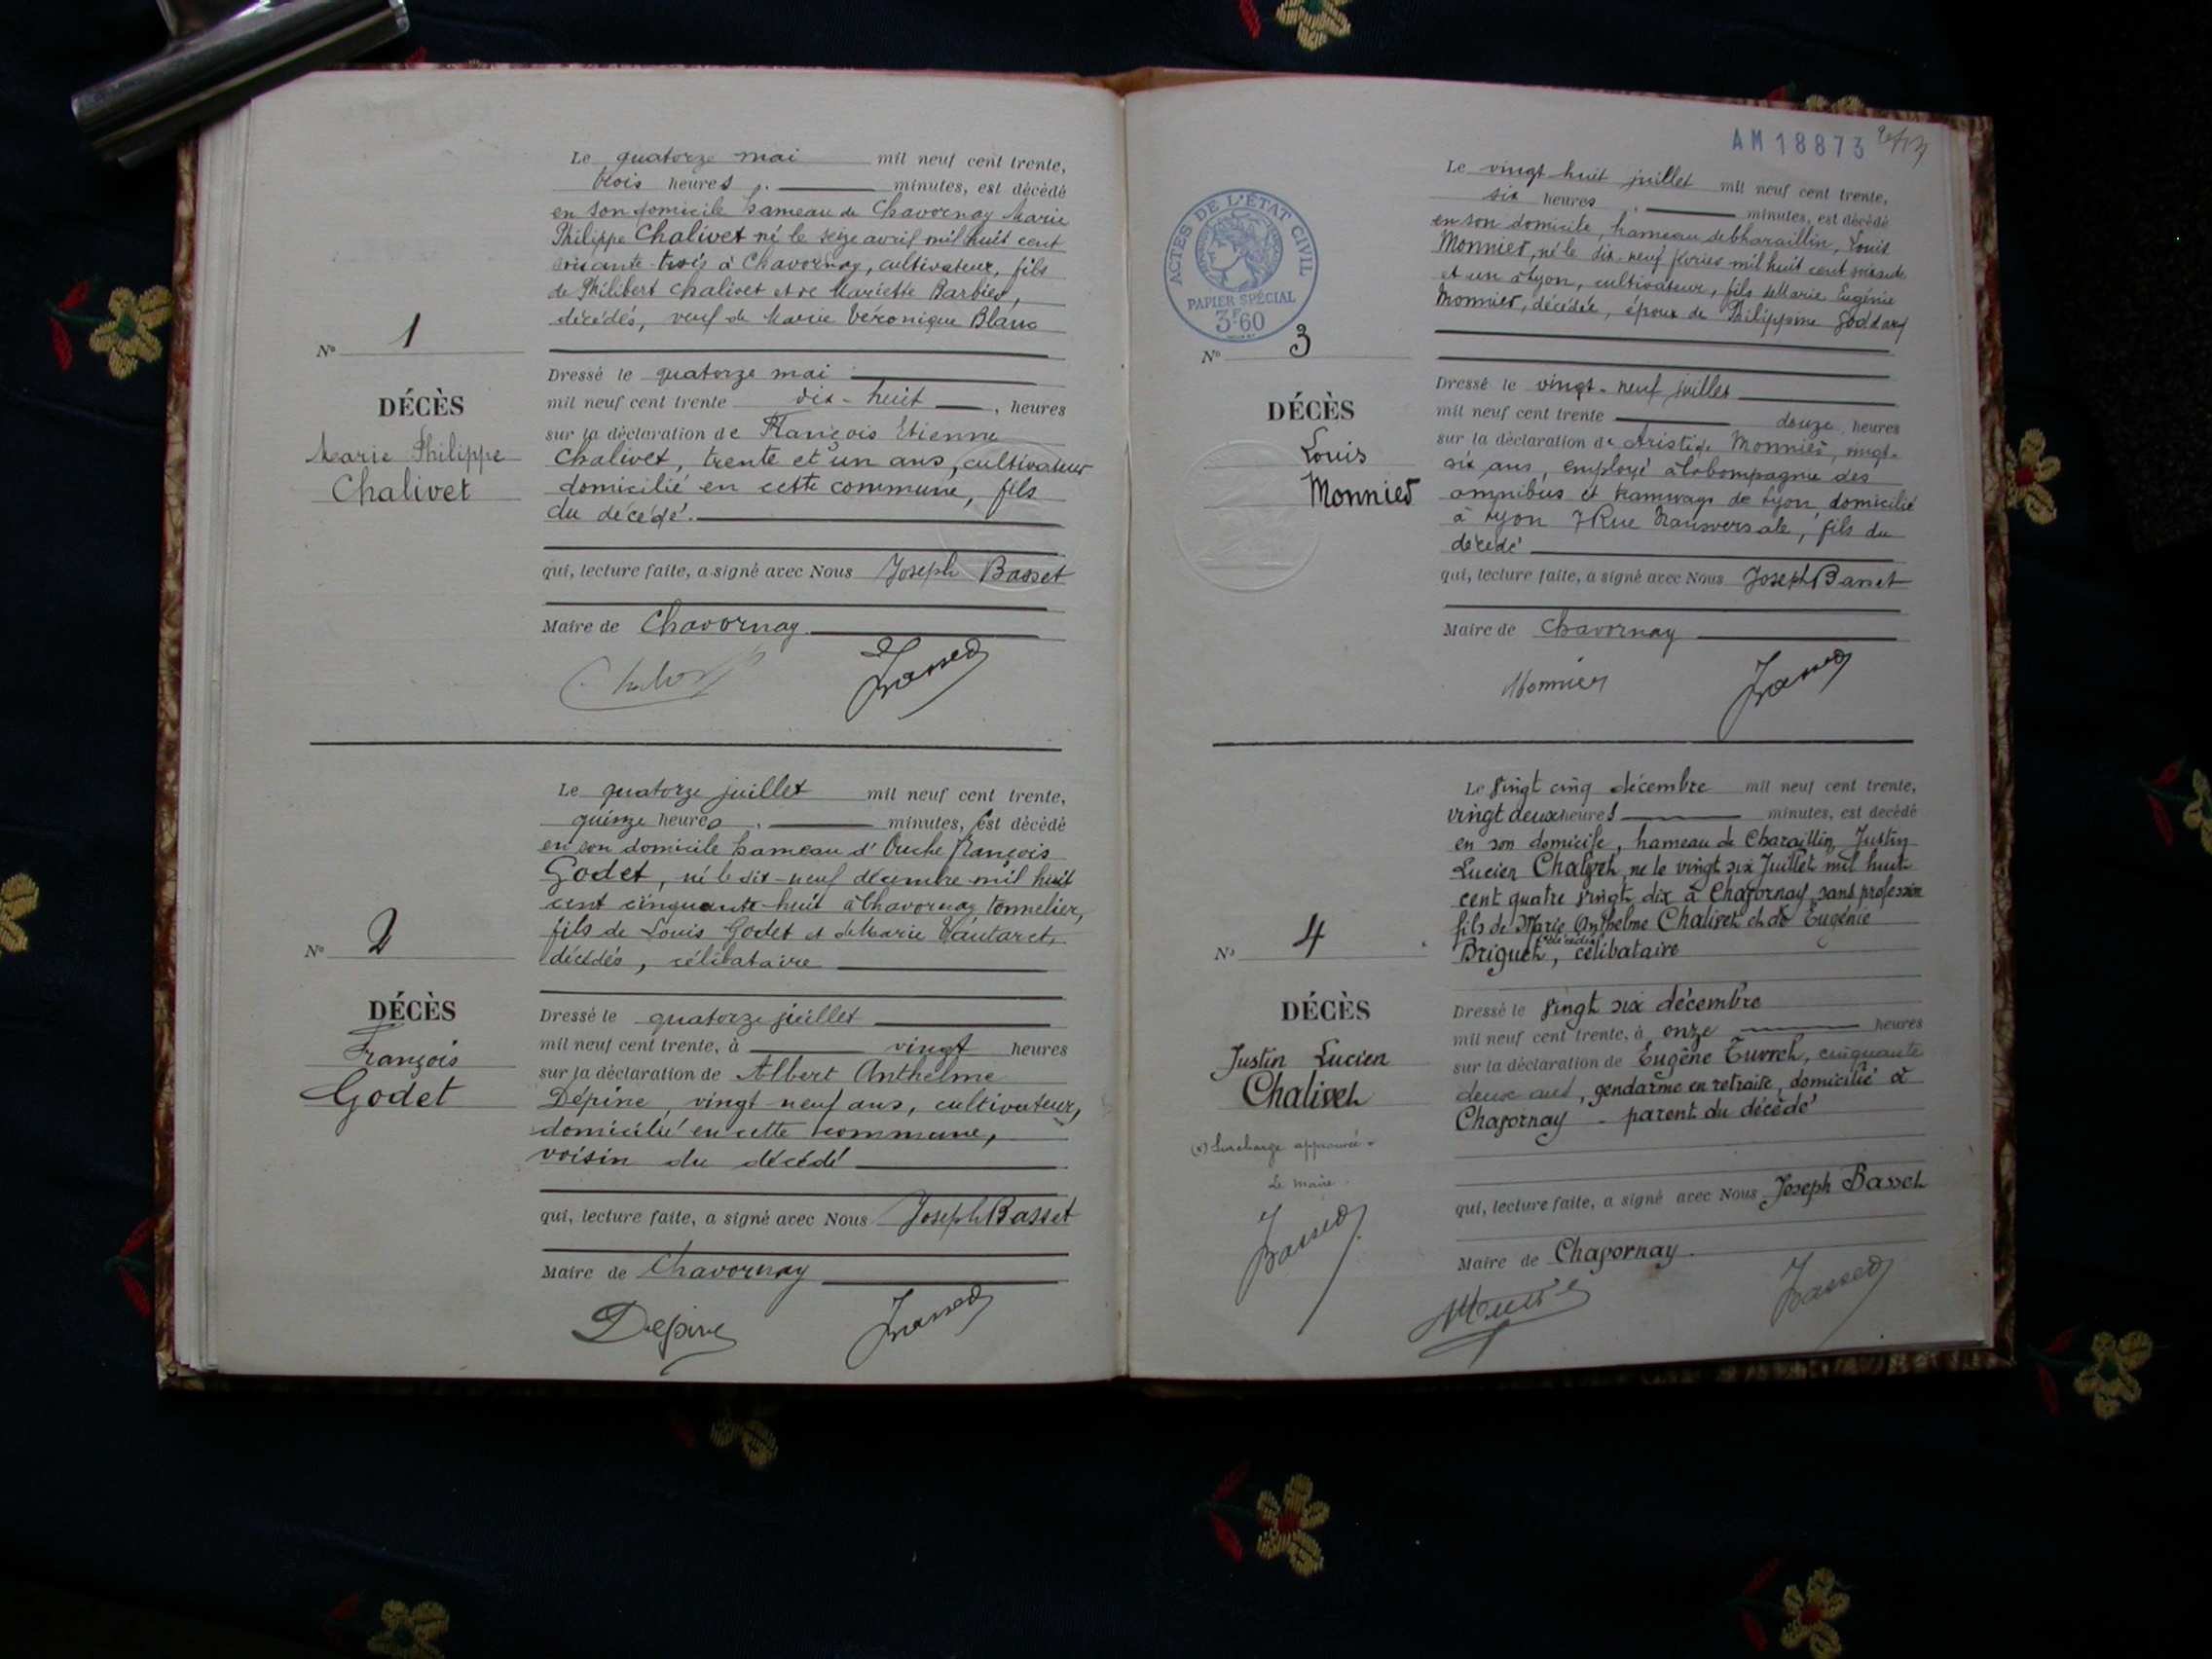 Le quatorze mai mil neuf cent trente,
trois heures minutes, est décédé
en son domicile hameau de Chavornay Marie
Philippe Chalivet né le seize avril mil huit cent
soixante-trois à Chavornay, cultivateur, fils
de Philibert Chalivet et de Mariette Barbier,
décédés, veuf de Marie Véronique Blanc
N° 1
DÉCÈS
Marie Philippe
Chalivet
Dressé le quatorze mai
mil neuf cent trente dix-huit, heures
sur la déclaration de François Etienne
Chalivet, trente et un ans, cultivateur
domicilié en cette commune, fils
du décédé.
qui, lecture faite, a signé avec Nous Joseph Basset
Maire de Chavornay
Basset
Le quatorze juillet mil neuf cent trente,
quinze heures minutes, est décédé
en son domicile hameau d'Ouche François
Godet, né le dix-neuf décembre mil huit
cent cinquante-huit à Chavornay tonnelier,
fils de Louis Godet et de Marie Vautaret,
décédés, célibataire
N° 2
DÉCÈS
François
Godet
Dressé le quatorze juillet
mil neuf cent trente, à vingt heures
sur la déclaration de Albert Anthelme
Dépine, vingt-neuf ans, cultivateur,
domicilié en cette commune,
voisin du décédé
qui, lecture faite, a signé avec Nous Joseph Basset
Maire de Chavornay
Depine Basset
AM 18873
ACTES DE L'ÉTAT CIVIL
PAPIER SPÉCIAL
3F60
Le vingt huit juillet mil neuf cent trente,
six heures minutes, est décédé
en son domicile, hameau de Charaillin, Louis
Monnier, né le dix-neuf février mil huit cent soixante
et un à Lyon, cultivateur, fils de Marie Eugénie
Monnier, décédée, époux de Philippine Goddard
N° 3
DÉCÈS
Louis
Monnier
Dressé le vingt-neuf juillet
mil neuf cent trente douze, heures
sur la déclaration de Aristide Monnier, vingt-
six ans, employé à la Compagnie des
omnibus et tramways de Lyon, domicilié
à Lyon 7 Rue Transversale, fils du
décédé
qui, lecture faite, a signé avec Nous Joseph Basset
Maire de Chavornay
Monnier Basset
Le vingt cinq décembre mil neuf cent trente,
vingt deux heures minutes, est décédé
en son domicile, hameau de Charaillin, Justin
Lucien Chalivet, né le vingt six Juillet mil huit
cent quatre vingt dix à Chavornay, sans profession
fils de Marie Anthelme Chalivet et de Eugénie
Briguet, célibataire
N° 4
DÉCÈS
Justin Lucien
Chalivet
(x) Surcharge approuvée.
Le maire.
Basset
Dressé le vingt six décembre
mil neuf cent trente, à onze heures
sur la déclaration de Eugène Turret, cinquante
deux ans, gendarme en retraite, domicilié à
Chavornay - parent du décédé
qui, lecture faite, a signé avec Nous Joseph Basset
Maire de Chavornay.
Basset